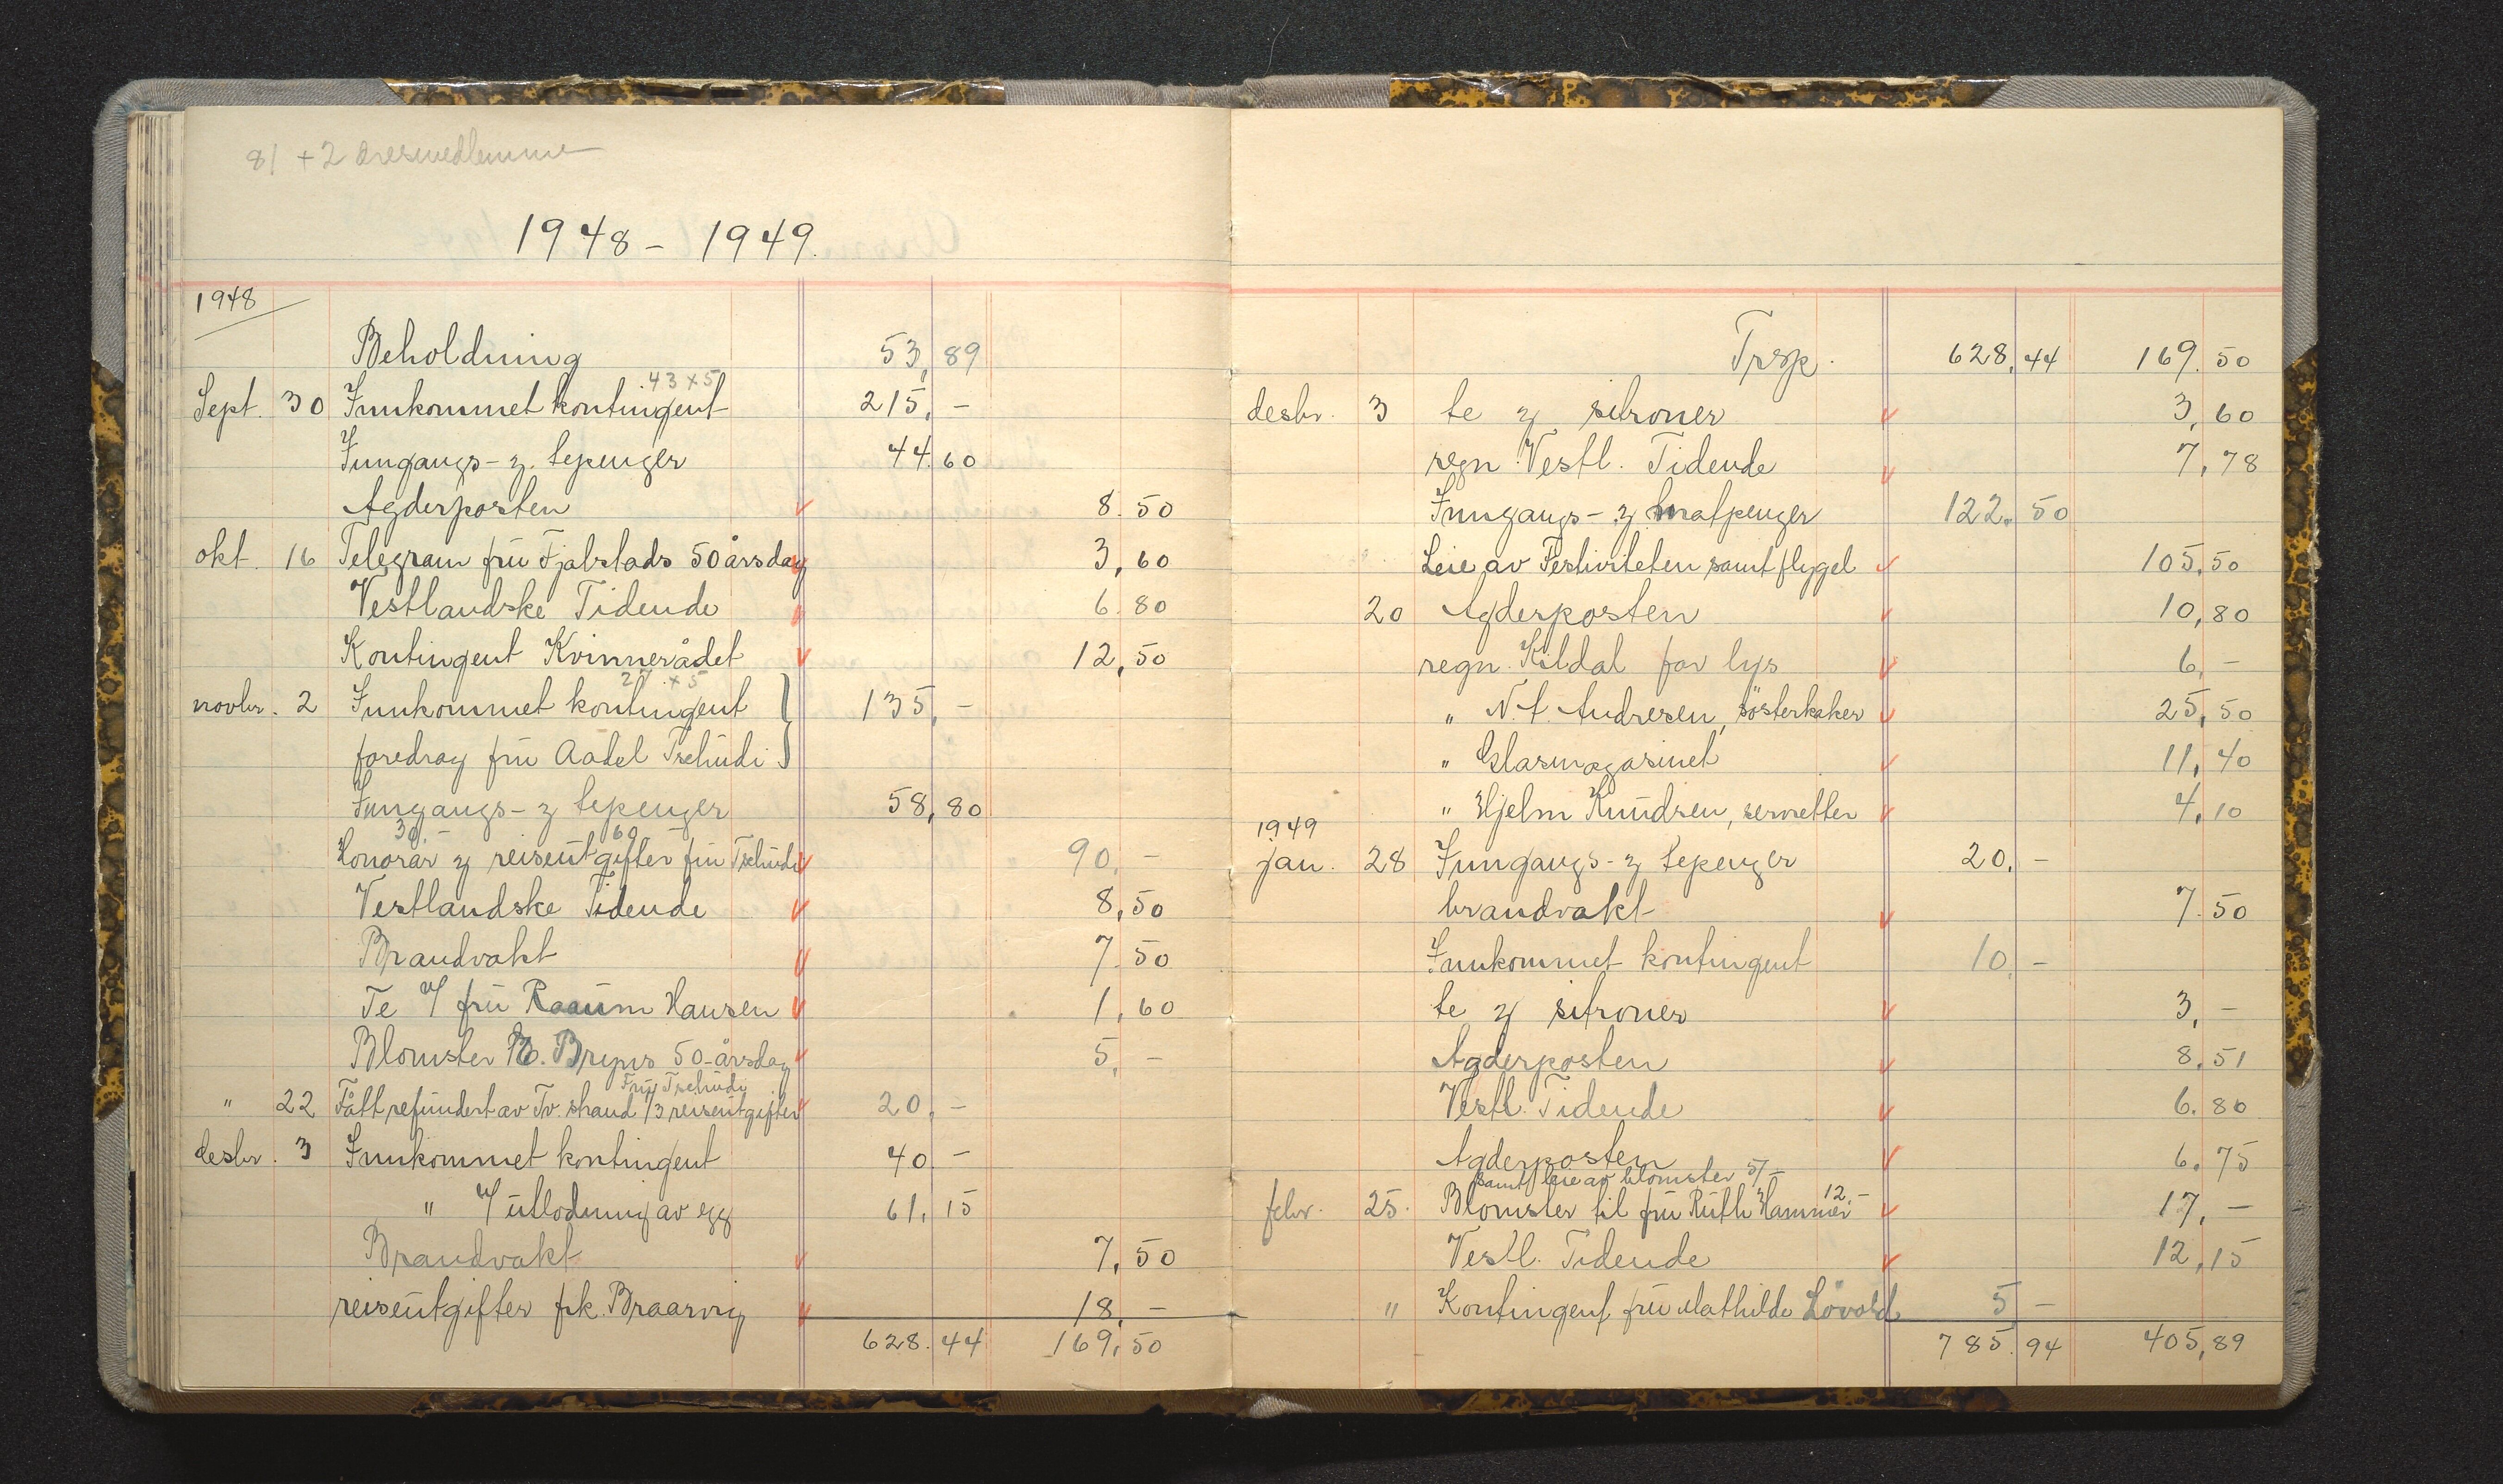 81 + 2 æresmedlemmer
1948 – 1949.
1948
Beholdning 53,89
43 x 5
Sept. 30 Innkommet kontingent 215,–
Inngangs- & tepenger 44.60
Agderposten 8.50
okt. 16 Telegram fru Fjalstads 50 årsdag 3,60
Vestlandske Tidende 6.80
Kontingent Kvinnerådet 12,50
27 x 5
novbr. 2 Innkommet kontingent 135,–
foredrag fru Aadel Tschudi
Inngangs- & tepenger 58,80
30.– 60
Honorar & reiseutgifter fru Tschudi 90.–
Vestlandske Tidende 8,50
Brandvakt 7.50
Te v/ fru Raaum Hansen 1,60
Blomster B. Bryns 50-årsdag 5,–
Fru Tschudi
" 22 Fått refundert av Tv.strand 1/3 reiseutgifter 20,–
desbr. 3 Innkommet kontingent 40.–
" v/ utlodning av egg 61,15
Brandvakt 7,50
reiseutgifter frk. Braarvig 18,–
628.44 169,50
Trsp. 628,44 169.50
desbr. 3 te & sitroner 3,60
regn. Vestl. Tidende 7,78
Inngangs- & matpenger 122.50
Leie av Festiviteten samt flygel 105,50
20 Agderposten 10,80
regn. Kildal for lys 6,–
" N. A. Andresen, søsterkaker 25,50
" Glasmagasinet 11,40
" Hjelm Knudsen, servietter 4,10
1949
jan. 28 Inngangs- & tepenger 20.–
brandvakt 7.50
Innkommet kontingent 10.–
te & sitroner 3,–
Agderposten 8.51
Vestl. Tidende 6.80
Agderposten 6.75
samt leie av blomster 5/–
febr. 25. Blomster til fru Ruth Hammer 12.– 17,–
Vestl. Tidende 12,15
" Kontingent fru Mathilde Løvold 5 –
785.94 405,89